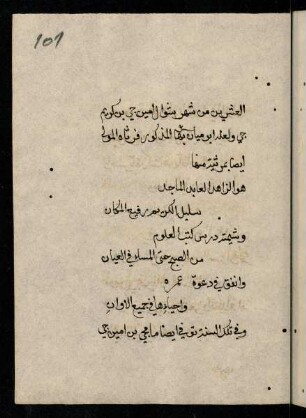 101
العشرين من شهر شوال امين جي بن كريم
جي ولعبد ابو ميان بكها المذكور فرثاه المولى
ايضا بمرثية منها
هو الزاهد العابد الماجد
سليل الكن رفيع المكان
وشيمته درس كتب العلوم
من الصبح حتى المسا في العيان
وانفق في دعوة عمره
واحياءها في جميع الاوان
وفي تلك السنة توفي ايضا ماجي بن امين جي